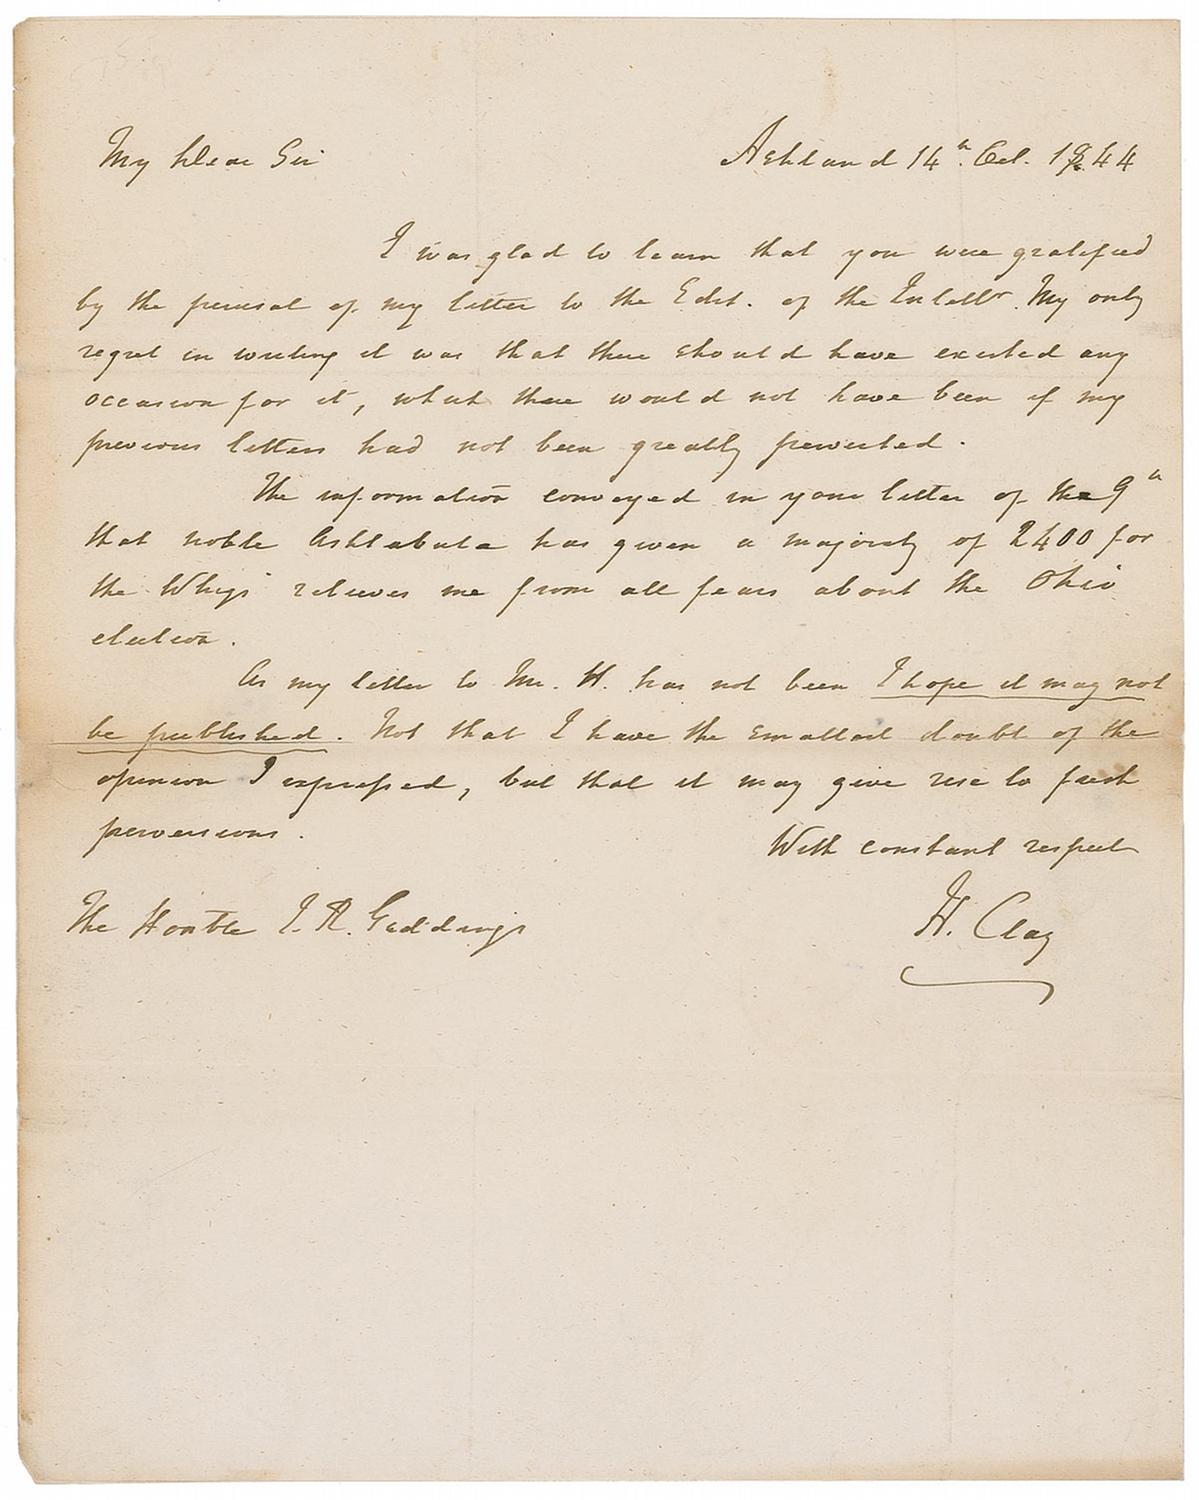 My Dear Sir
Ashland 14th. Oct. 1844
I was glad to learn that you were gratified
by the perusal of my letter to the Edit. of the Intellr. My only
regret in writing it was that there should have existed any
occasion for it, what there would not have been if my
previous letters had not been greatly perverted.
The information conveyed in your letter of the 9th
that noble Ashtabula has given a majority of 2400 for
the Whigs relieves me from all fears about the Ohio
election.
As my letter to Mr. H. has not been I hope it may not
be published. Not that I have the smallest doubt of the
opinion I expressed, but that it may give rise to fresh
perversions.
With constant respect
H. Clay
The Honble J. R. Giddings